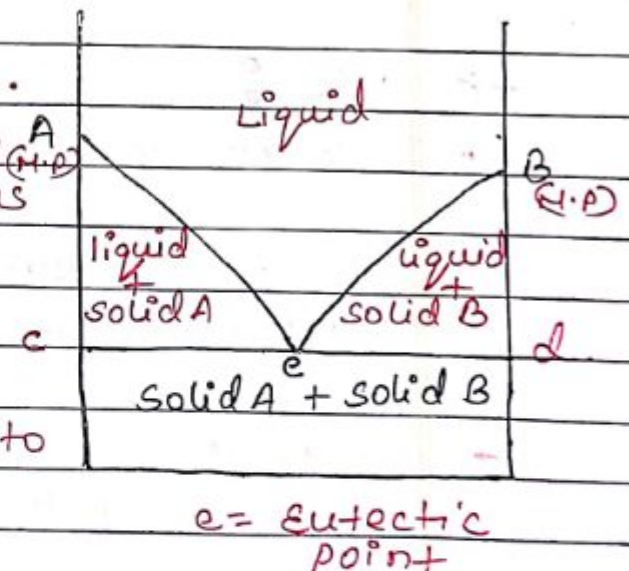 Liquid
A
(M.P)
B
(M.P)
s
liquid
+
solid A
liquid
+
solid B
c
e
d
solid A + solid B
to
e = Eutectic
point